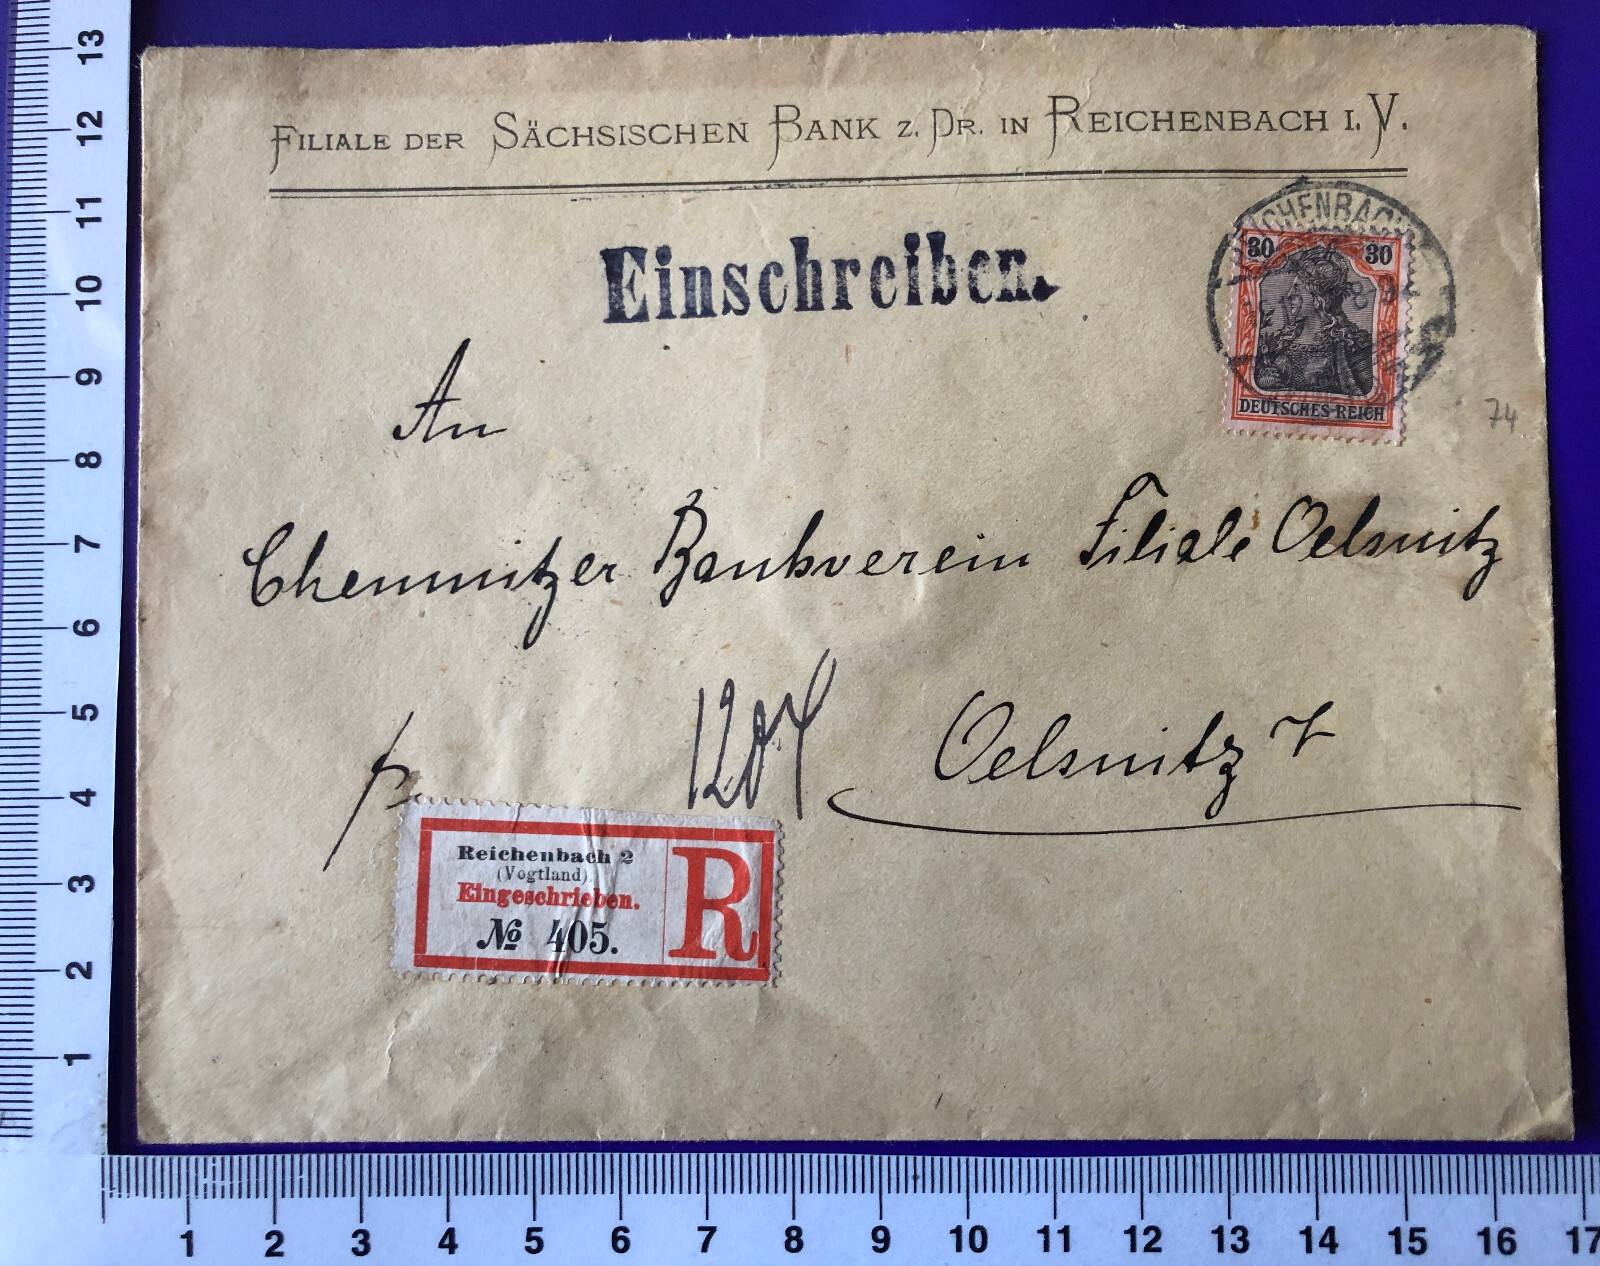 FILIALE DER SÄCHSISCHEN BANK Z. DR. IN REICHENBACH I. V.
Einschreiben.
REICHENBACH
30 30
DEUTSCHES REICH
74
An
Chemnitzer Bankverein Filiale Oelsnitz
Oelsnitz
Reichenbach 2
(Vogtland)
Eingeschrieben.
№ 405.
R
13
12
11
10
9
8
7
6
5
4
3
2
1
1 2 3 4 5 6 7 8 9 10 11 12 13 14 15 16 17